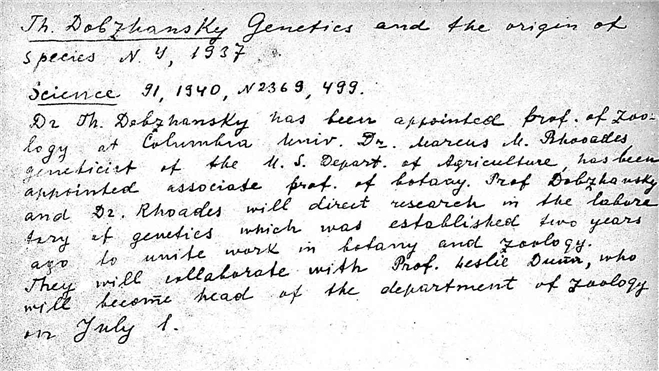 Th. Dobzhansky Genetics and the origin of
species N. Y, 1937
Science 91, 1940, N2369, 499.
Dr Th. Dobzhansky has been appointed Prof. of Zoo-
logy at Columbia Univ. Dr. Marcus M. Rhoades
geneticist of the U. S. Depart. of Agriculture, has been
appointed associate prof. of botany. Prof Dobzhansky
and Dr. Rhoades will direct research in the labora
tory of genetics which was established two years
ago to unite work in botany and zoology.
They will collaborate with Prof. Leslie Dunn, who
will become head of the department of Zoology
on July 1.